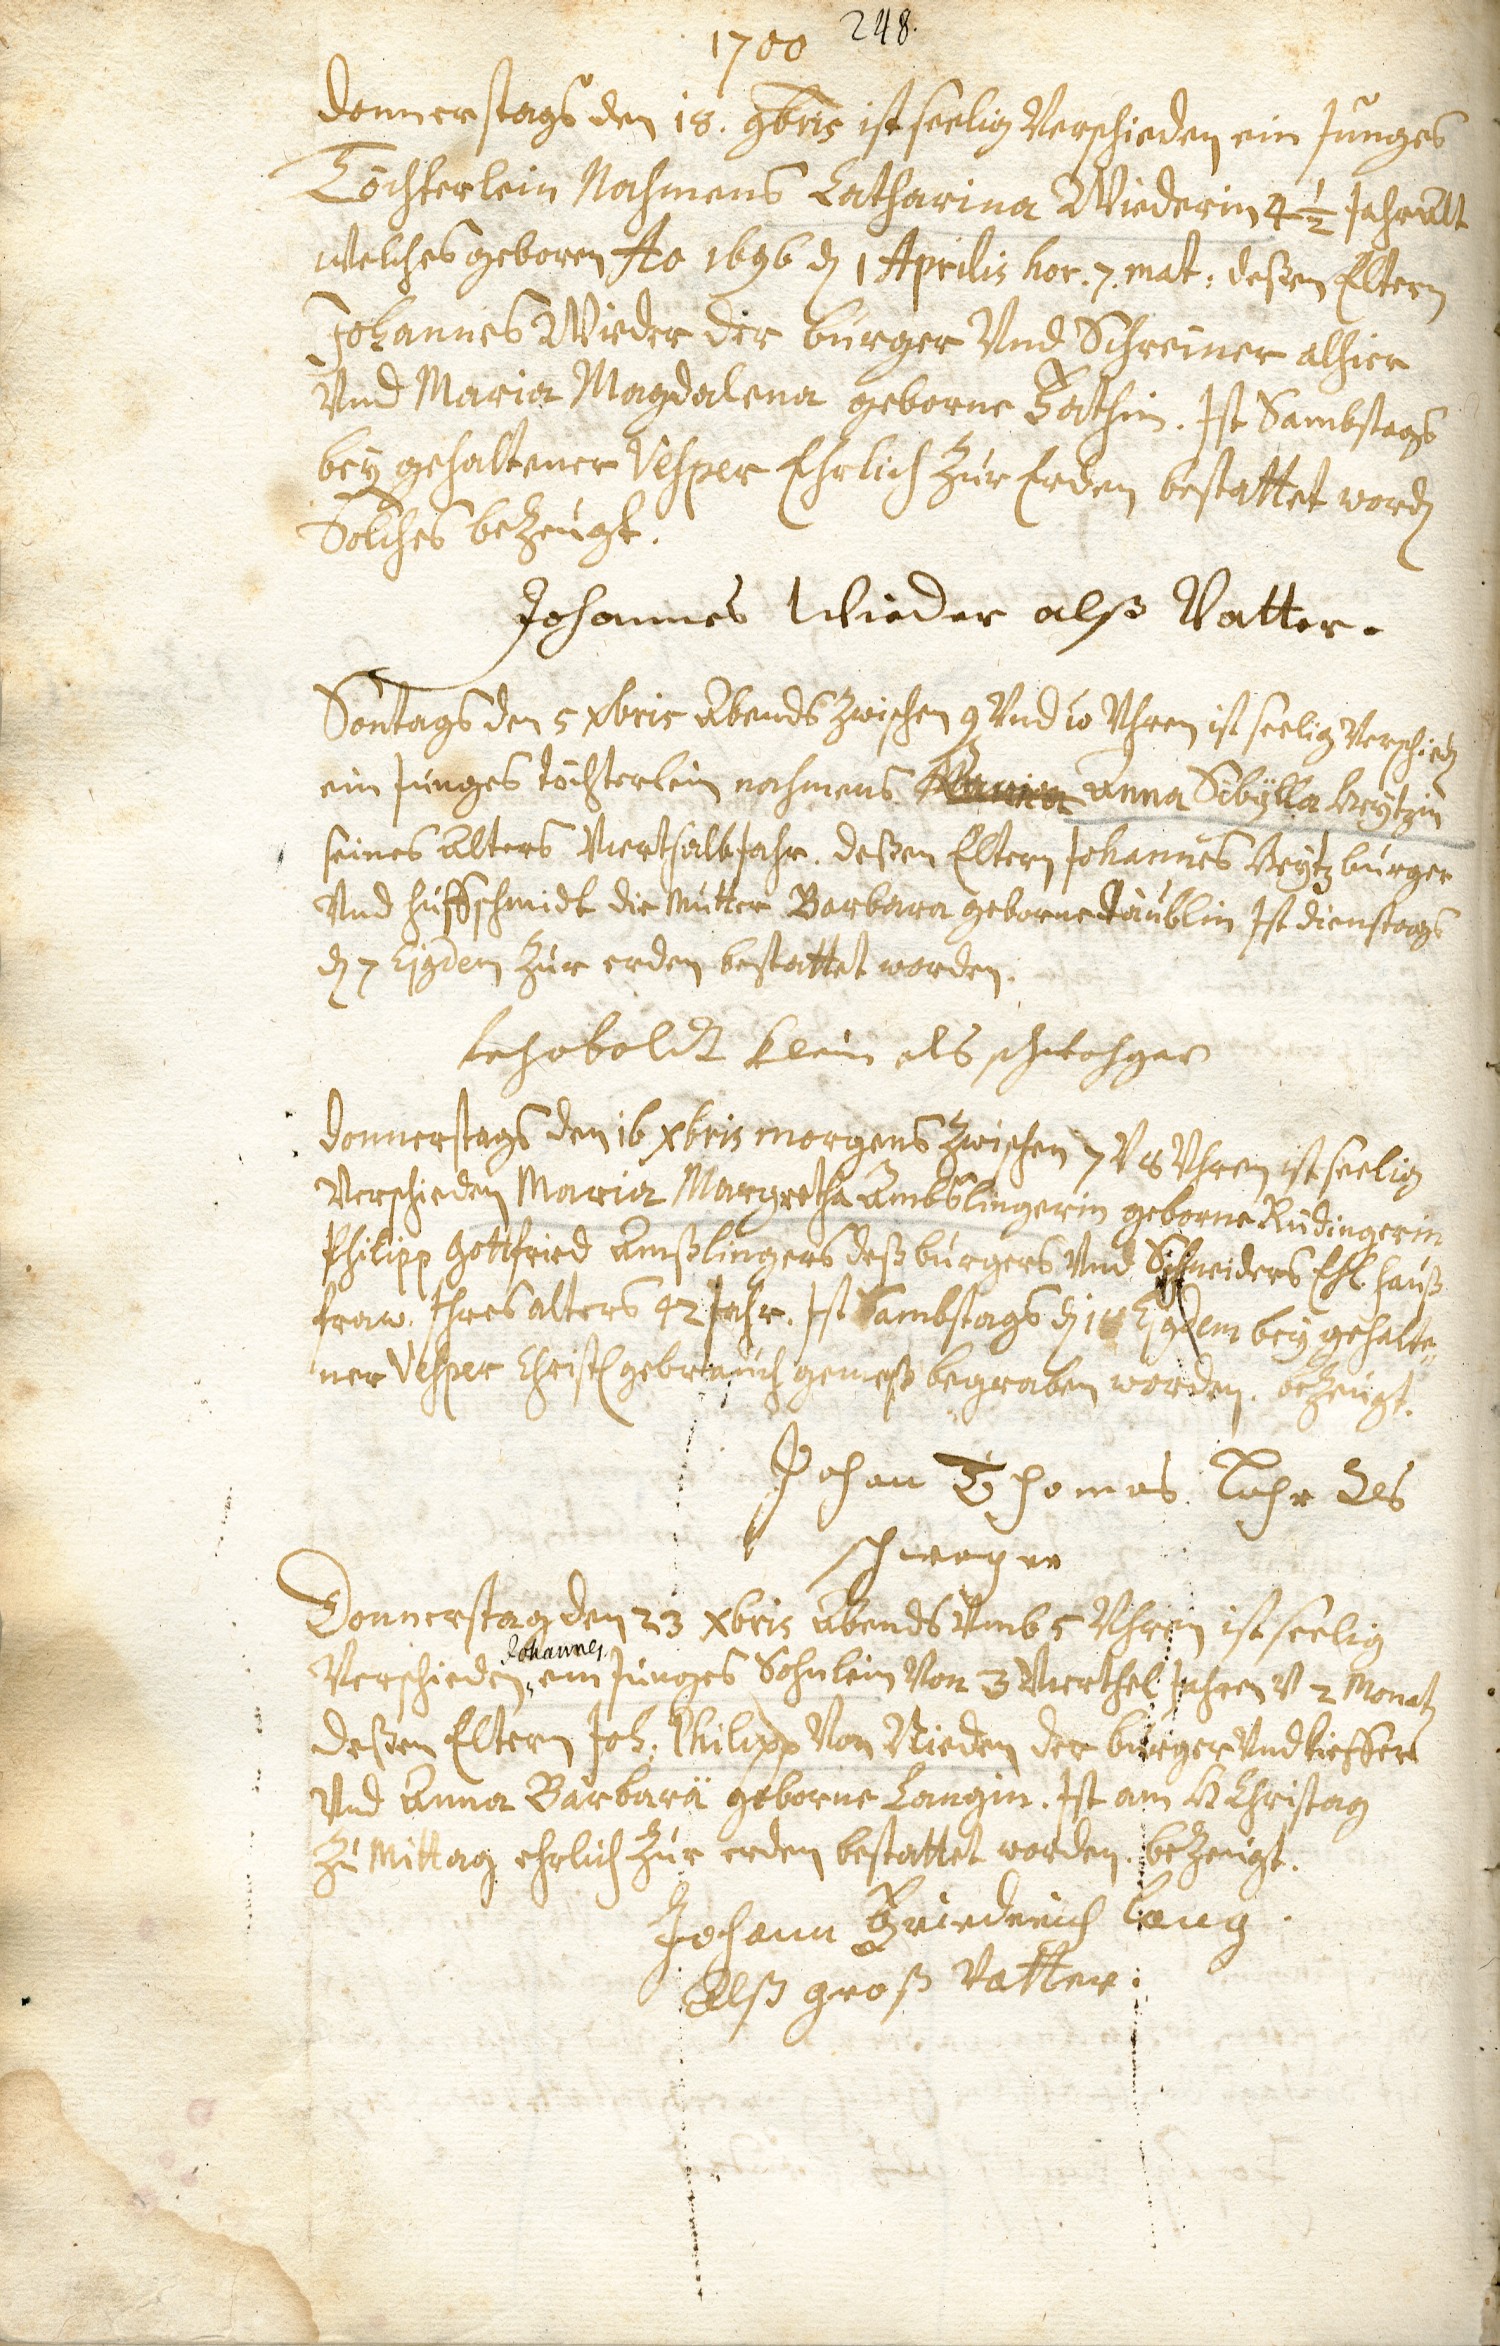 1700
248.
Donnerstags den 18. 9bris ist seelig Verschieden ein Junges
Töchterlein Nahmens Catharina Wiederin 4 1/2 Jahr Alt
welches geboren Ao 1696 d 1 Aprilis hor. 7. mat: deßen Eltern
Johannes Wieder der burger Vnd Schreiner alhier
Vnd Maria Magdalena geborne Bathin. Ist Sambstags
bey gehaltener Vesper Ehrlich zur Erden bestattet word
Solches bezeugt.
Johannes Wieder alß Vatter.
Sontags den 5 xbris Abends zwischen 9 Vnd 10 Vhren ist seelig Verschied
ein Junges töchterlein nahmens Anna Sibÿlla
seines Alters Vierthalb Jahr. deßen Eltern Johannes burger
Vnd huffschmidt die Mutter Barbara geborne Täublin Ist dienstags
d 7 Ejqdem zur erden bestattet worden.
Klein als schwoger
Donnerstags den 16 xbris morgens zwischen 7 V 8 Vhren ist seelig
Verschieden Maria Margretha Ambslingerin geborne Rudingerin
Philipp Gottfried Amßlingers deß burgers Vnd Schneiders Ehl. hauß
fraw. Ihres alters 42 Jahr. Ist Sambstags d 18 Ejqdem bey gehalte„
ner Vesper Christl gebrauch gemeß begraben worden. bezeugt.
Johan Thomas als
schwager
Donnerstag den 23 xbris Abends Vmb 5 Vhren ist seelig
Johannes.
Verschieden, ein Junges Sohnlein Von 3 Vierthel Jahren V 2 Monat
deßen Eltern Joh. Philipp Von Nieden der burger Vnd kieffer
Vnd Anna Barbara geborne Langin. Ist am H Christag
zu Mittag ehrlich zur erden bestattet worden. bezeugt.
Johann Friedrich Lang.
Alß groß Vatter.